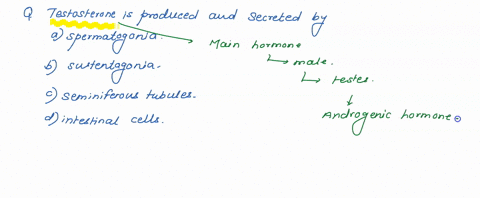 Q Testosterone is produced and secreted by
a) spermatogonia.
Main hormone
male.
b) sustentagonia.
testes.
c) seminiferous tubules.
Androgenic hormone
d) intestinal cells.